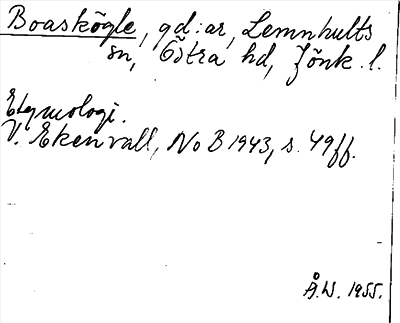 Boaskögle, gd:ar, Lemnhults
sn, Östra hd, Jönk. l.
Etymologi.
V. Ekenvall, NoB 1943, s. 49ff.
Å.W. 1955.